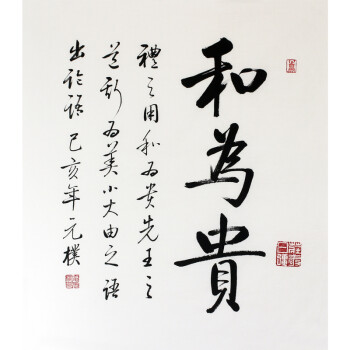 和為貴
禮之用和為貴先王之
道斯為美小大由之語
出論語己亥年元樸